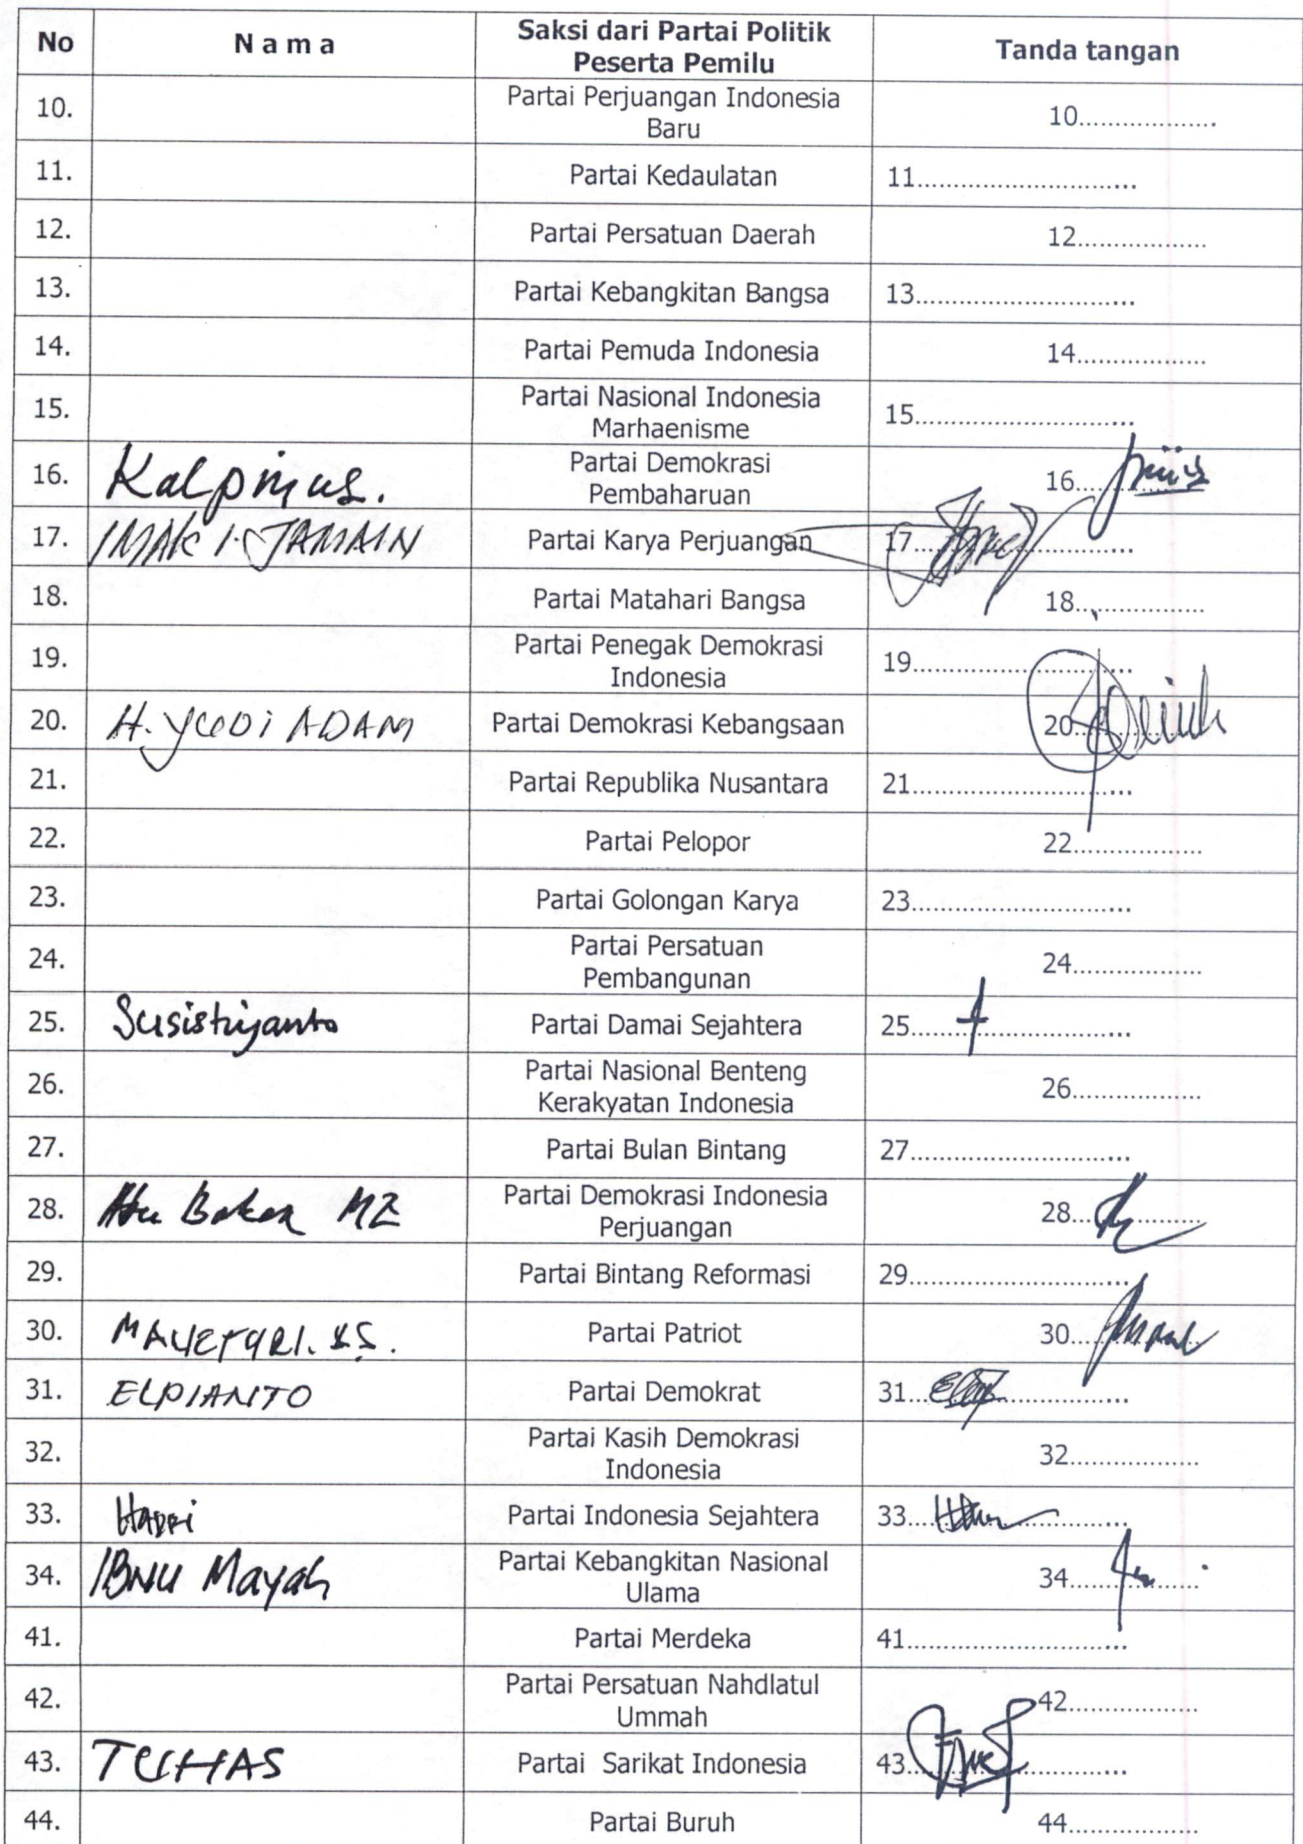 No N a m a Saksi dari Partai Politik Peserta Pemilu Tanda tangan
10. Partai Perjuangan Indonesia Baru 10..................
11. Partai Kedaulatan 11.............................
12. Partai Persatuan Daerah 12.................
13. Partai Kebangkitan Bangsa 13.............................
14. Partai Pemuda Indonesia 14.................
15. Partai Nasional Indonesia Marhaenisme 15.............................
16. Kalpinus. Partai Demokrasi Pembaharuan 16.................
17. JAMAIN Partai Karya Perjuangan 17.............................
18. Partai Matahari Bangsa 18.................
19. Partai Penegak Demokrasi Indonesia 19.............................
20. H. YUDI ADAM Partai Demokrasi Kebangsaan 20.................
21. Partai Republika Nusantara 21.............................
22. Partai Pelopor 22.................
23. Partai Golongan Karya 23.............................
24. Partai Persatuan Pembangunan 24.................
25. Susistriyanto Partai Damai Sejahtera 25.............................
26. Partai Nasional Benteng Kerakyatan Indonesia 26.................
27. Partai Bulan Bintang 27.............................
28. Abu Bakar MZ Partai Demokrasi Indonesia Perjuangan 28.................
29. Partai Bintang Reformasi 29.............................
30. Partai Patriot 30.................
31. ELPIANTO Partai Demokrat 31.............................
32. Partai Kasih Demokrasi Indonesia 32.................
33. Hadri Partai Indonesia Sejahtera 33.............................
34. IBNU Mayah Partai Kebangkitan Nasional Ulama 34.................
41. Partai Merdeka 41.............................
42. Partai Persatuan Nahdlatul Ummah 42.................
43. TUHAS Partai Sarikat Indonesia 43.............................
44. Partai Buruh 44.................